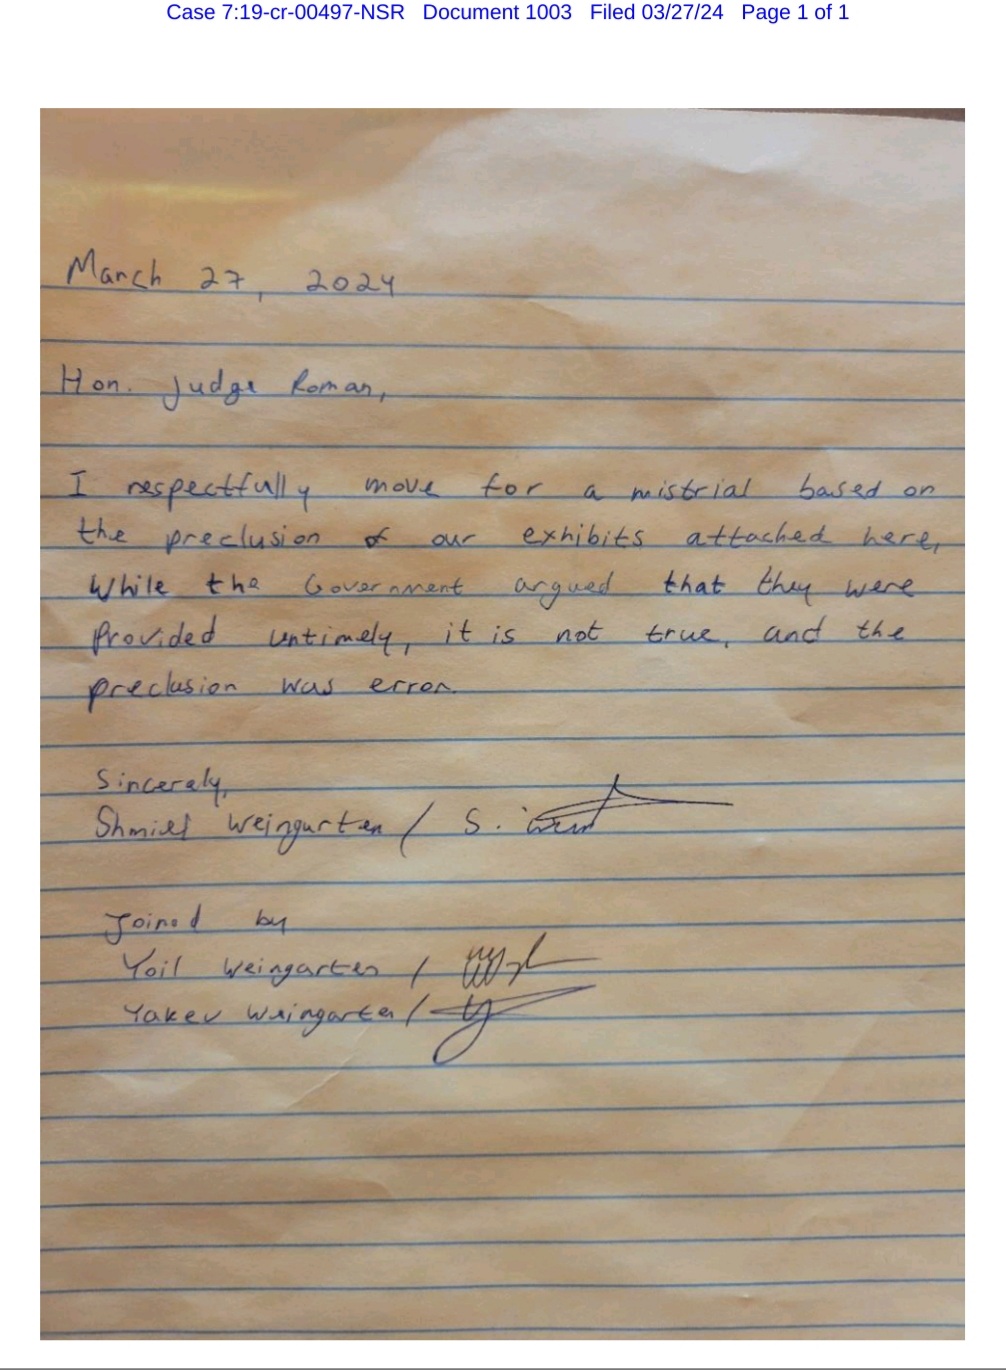 Case 7:19-cr-00497-NSR Document 1003 Filed 03/27/24 Page 1 of 1
March 27, 2024
Hon. Judge Roman,
I respectfully move for a mistrial based on
the preclusion of our exhibits attached here,
While the Government argued that they were
Provided untimely, it is not true, and the
preclusion was error.
Sincerely,
Shmiel Weingarten / S.
Joined by
Yoil Weingarten /
Yakev Weingarten /